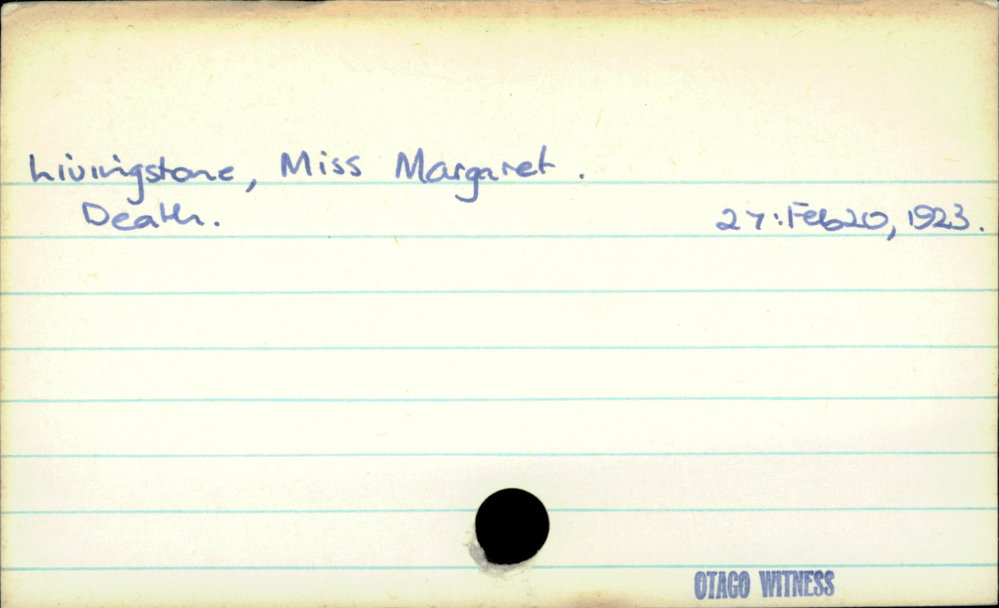 Livingstone, Miss Margaret.
Death. 27:Feb20, 1923.
OTAGO WITNESS